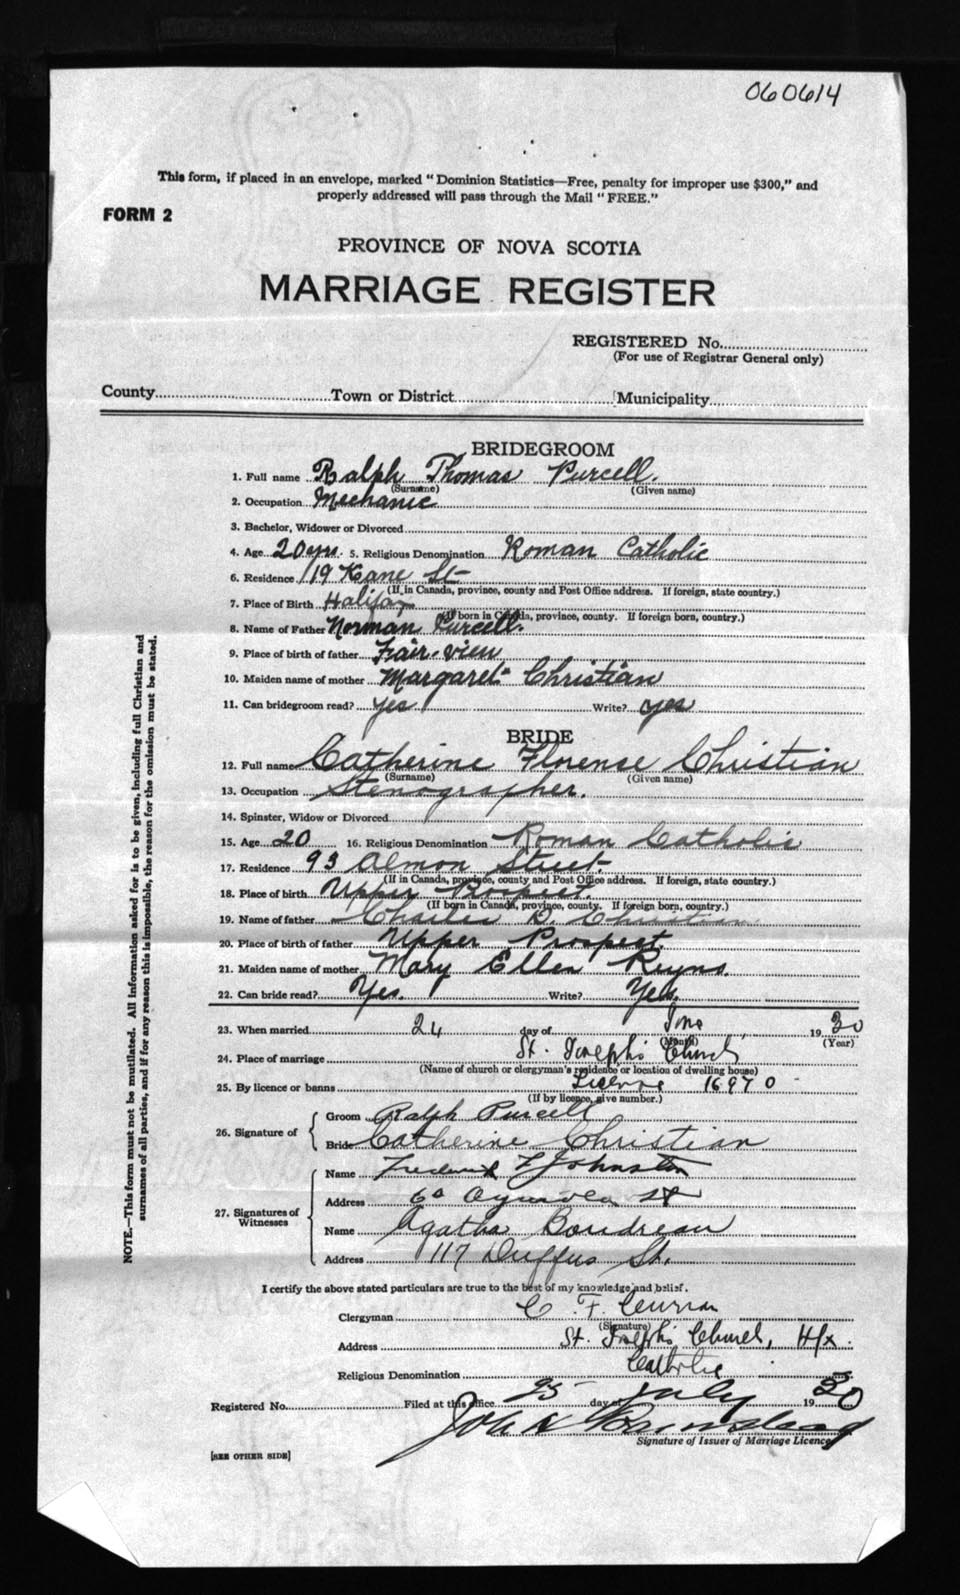 060614
This form, if placed in an envelope, marked "Dominion Statistics—Free, penalty for improper use $300," and
properly addressed will pass through the Mail "FREE."
FORM 2
PROVINCE OF NOVA SCOTIA
MARRIAGE REGISTER
REGISTERED No.
(For use of Registrar General only)
County Town or District Municipality
BRIDEGROOM
1. Full name Ralph Thomas Purcell.
(Surname) (Given name)
2. Occupation Mechanic
3. Bachelor, Widower or Divorced
4. Age 20 yrs. 5. Religious Denomination Roman Catholic
6. Residence 119 Kane St
(If in Canada, province, county and Post Office address. If foreign, state country.)
7. Place of Birth Halifax
(If born in Canada, province, county. If foreign born, country.)
8. Name of Father Norman Purcell.
9. Place of birth of father Fair-view
10. Maiden name of mother Margaret Christian
11. Can bridegroom read? yes Write? yes
BRIDE
12. Full name Catherine Florense Christian
(Surname) (Given name)
13. Occupation Stenographer.
14. Spinster, Widow or Divorced
15. Age 20 16. Religious Denomination Roman Catholic
17. Residence 93 Almon Street
(If in Canada, province, county and Post Office address. If foreign, state country.)
18. Place of birth Upper Prospect.
(If born in Canada, province, county. If foreign born, country.)
19. Name of father Charles D. Christian
20. Place of birth of father Upper Prospect.
21. Maiden name of mother Mary Ellen Ryns.
22. Can bride read? Yes. Write? Yes.
23. When married 24 day of 19 30
(Month) (Year)
24. Place of marriage St. Joseph's Church
(Name of church or clergyman's residence or location of dwelling house)
25. By licence or banns License 16970
(If by licence, give number.)
26. Signature of
Groom Ralph Purcell
Bride Catherine Christian
27. Signatures of Witnesses
Name Frederick F Johnston
Address 60 St
Name Agatha Boudreau
Address 117 Duffus St.
I certify the above stated particulars are true to the best of my knowledge and belief.
Clergyman C. F. Curran
(Signature)
Address St. Joseph's Church, Hfx.
Religious Denomination Catholic
Registered No. Filed at this office 25 day of July 19 30
John
Signature of Issuer of Marriage Licence
[SEE OTHER SIDE]
NOTE.—This form must not be mutilated. All information asked for is to be given, including full Christian and
surnames of all parties, and if for any reason this is impossible, the reason for the omission must be stated.